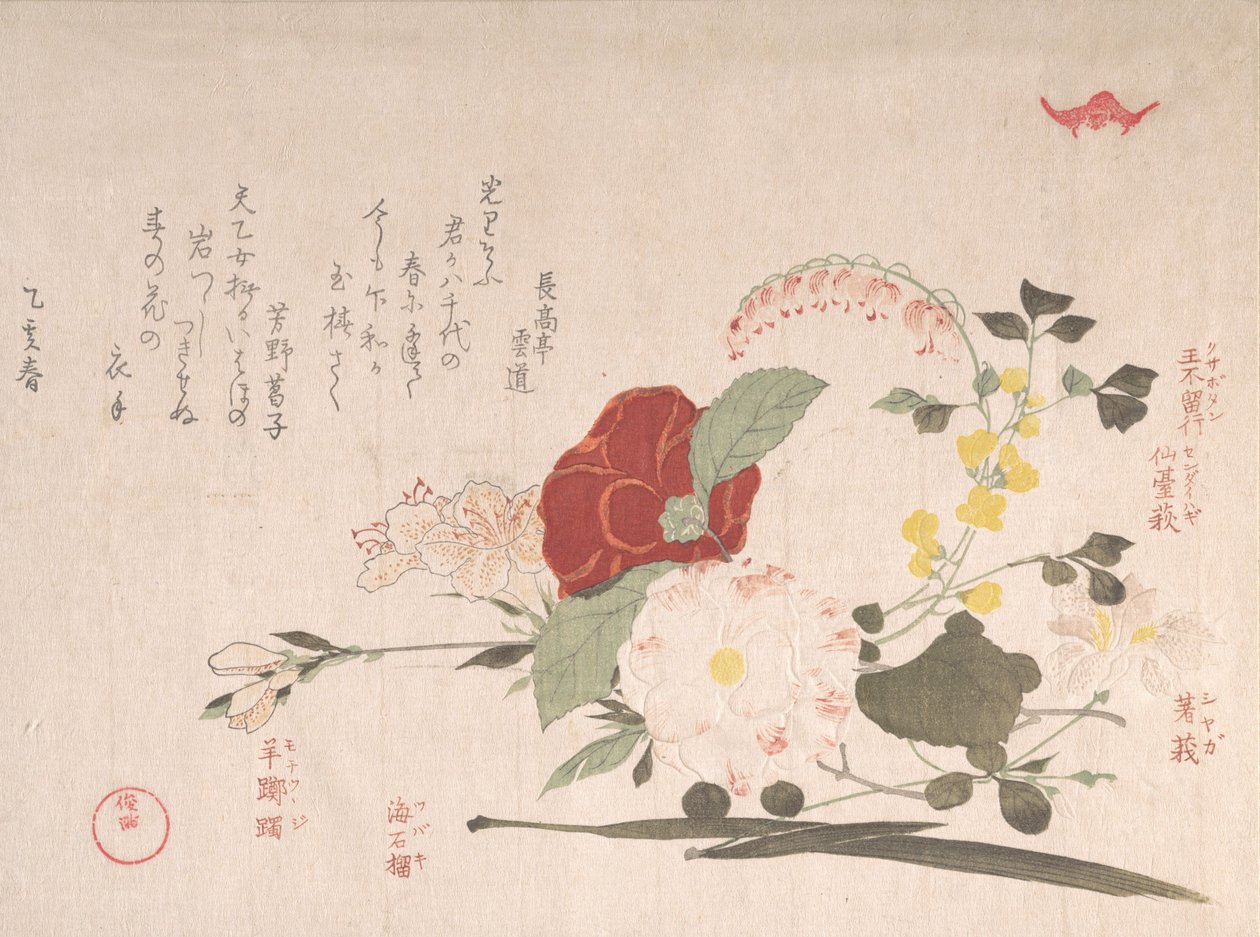 クサボタン
王不留行
センダイハギ
仙臺萩
シヤガ
著莪
長高亭
雲道
光りそふ
君か八千代の
春に逢て
今も卞和か
玉椿さく
芳野菖子
天乙女撫るいはほの
岩つゝし
つきせぬ
春の花の
衣手
乙亥春
ツバキ
海石榴
モチツヽジ
羊躑躅
俊満